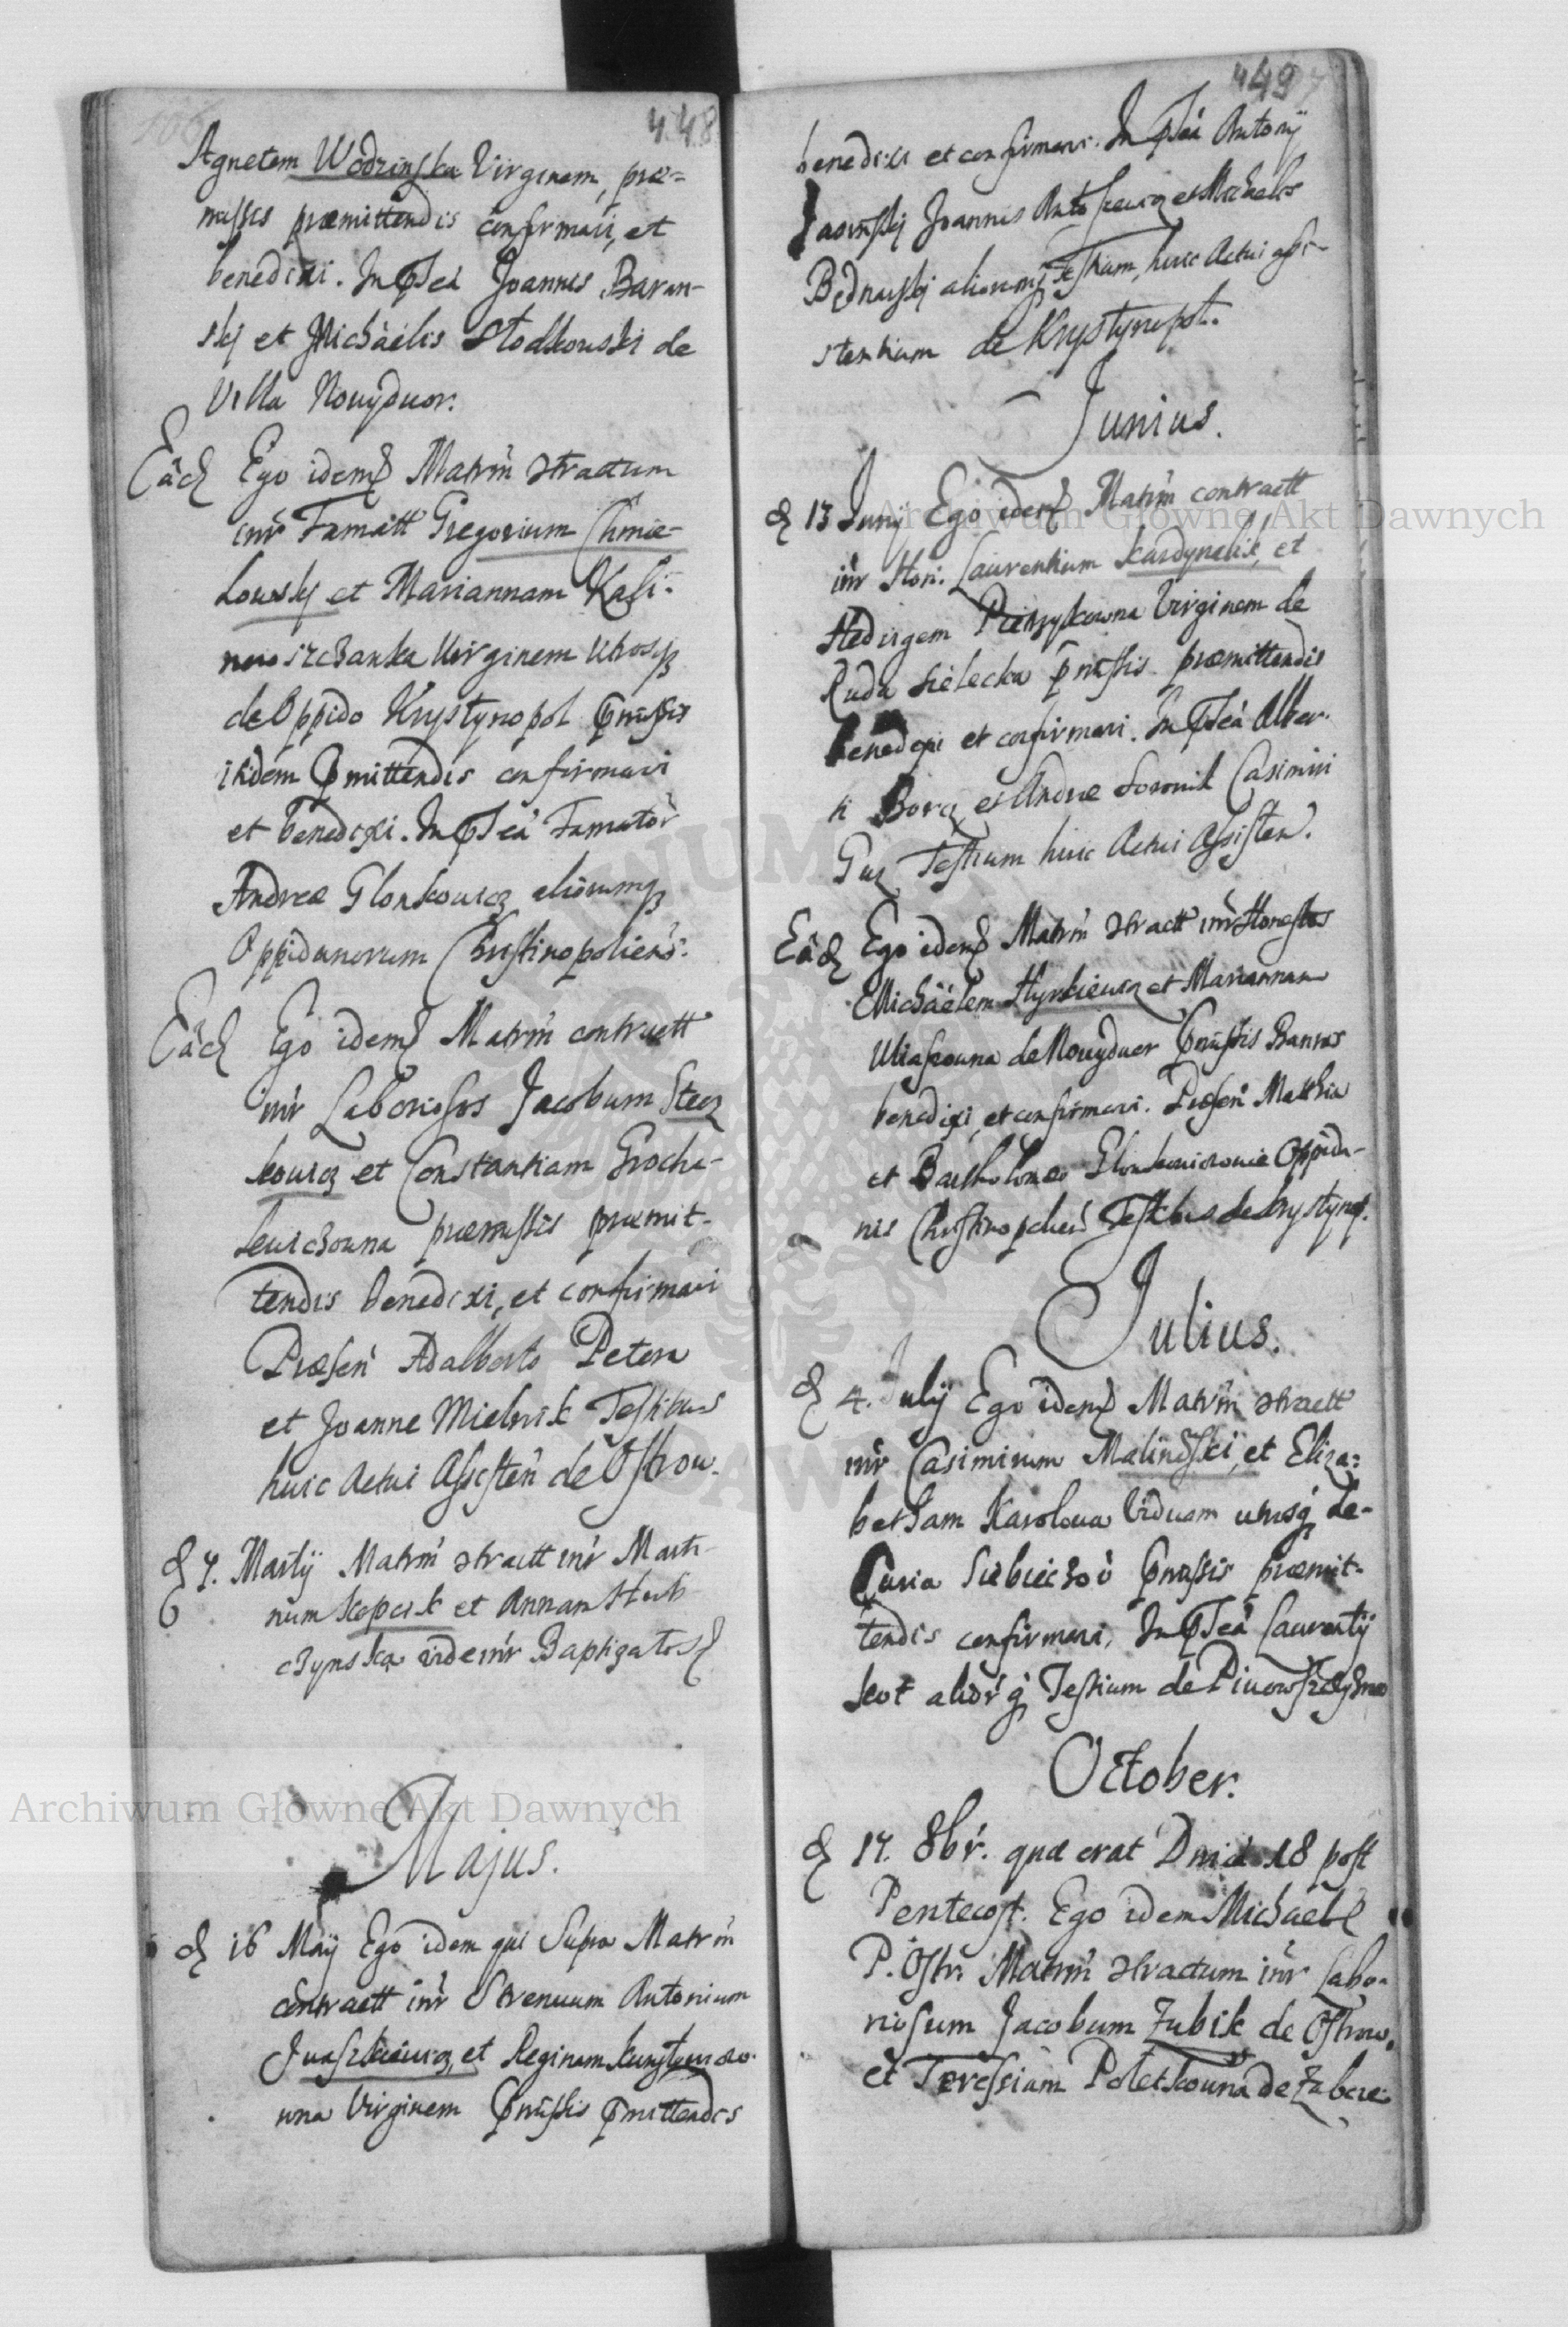 448
Agnetem Wodzinska Virginem, præ-
missis præmittendis confirmavi, et
benedixi. In Pseä Joannis Baran-
skij et Michäelis Stodkowski de
Villa Nouijduor.
Eâd Ego idem Matrim̃ Stractum
inir Famatt Gregorium Chmie-
lowskj et Mariannam Kali-
nowszczanka Virginem utrosq
de Oppido Krystynopol Pmissis
itidem Pmittendis confirmavi
et benedixi. In Pseä Famator̃
Andreæ Glonkowicz aliorumq
Oppidanorum Christinopoliens.
Eâd Ego idem Matrim̃ contractt
inir Laboriosos Jacobum Stecz
kowicz et Constantiam Groche-
lewichouna præmissis præmit-
tendis benedixi, et confirmavi
Præsen̄ Adalberto Petera
et Joanne Mielnik Testibus
huic Actui Assisten̄ de Ostrow.
d 7. Martij Matrim̃ Stractt inir Marti-
num Kopcik et Annam
czynska vide inir Baptizatos
Majus.
d 16 Maij Ego idem qui Supra Matrim̃
contractt inir Strenuum Antonium
Juaszkiewicz, et Reginam
una Virginem Pmissis Pmittendis
449
benedixi et confirmavi. In Pseä Antonij
Jasinskj Joannis Antoszewicz et Michaelis
Bednarskj aliorumq Testium, huic Actui assi-
stentium de Krystynopol.
Junius.
d 13 Junij Ego idem Matrim̃ contractt
inir Hon: Laurentium Kardynalik, et
Hedvigem Pietrzykowna Virginem de
Ruda Sielecka Pmissis præmittendis
benedixi et confirmavi. In Pseä Alber-
ti Borcz et Andreæ Casimiri
Guz Testium huic Actui Assisten̄.
Eâd Ego idem Matrim̃ Stractt inir Honestos
Michäelem Hyrkiewicz et Mariannam
Uliaszouna de Nouyduor Pmissis Bannis
benedixi, et confirmavi. Præsen̄ Mathia
et Bartholomeo Glonkowiczouie Oppida-
nis Christinopolien̄ Testibus de Krystynop.
Julius.
d 4. Julij Ego idem Matrim̃ Stractt
inir Casimirum Malinoski, et Eliza-
betham Karolowa Viduam utrosq de
Curia Siebieczow Pmissis præmit-
tendis confirmavi, In Pseä Laurentij
Kot aliorq Testium de Piwowszczyzna
October.
d 17. 8br̃. quæ erat Dnica 18 post
Pentecost. Ego idem Michäel
P. Ostr. Matrim̃ Stractum inir Labo-
riosum Jacobum Zubik de Ostrow.
et Teressiam Poletkouna de Zabcze
Archiwum Główne Akt Dawnych
Archiwum Główne Akt Dawnych